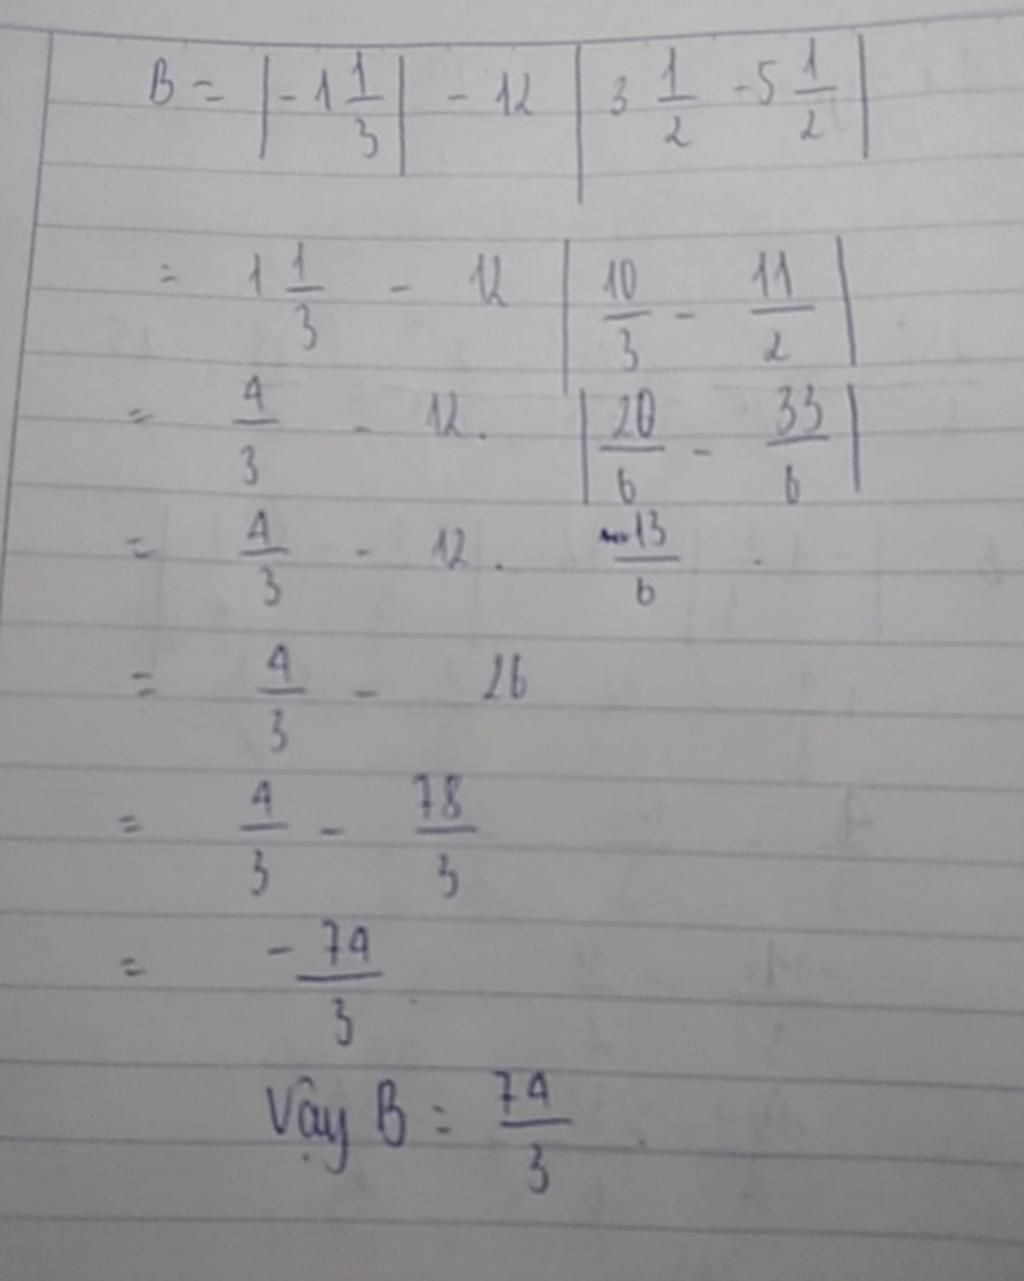 B = |-1 1/3| - 12 |3 1/2 - 5 1/2|
= 1 1/3 - 12 |10/3 - 11/2|
= 4/3 - 12. |20/6 - 33/6|
= 4/3 - 12. 13/6.
= 4/3 - 26
= 4/3 - 78/3
= -74/3.
Vậy B = 74/3.